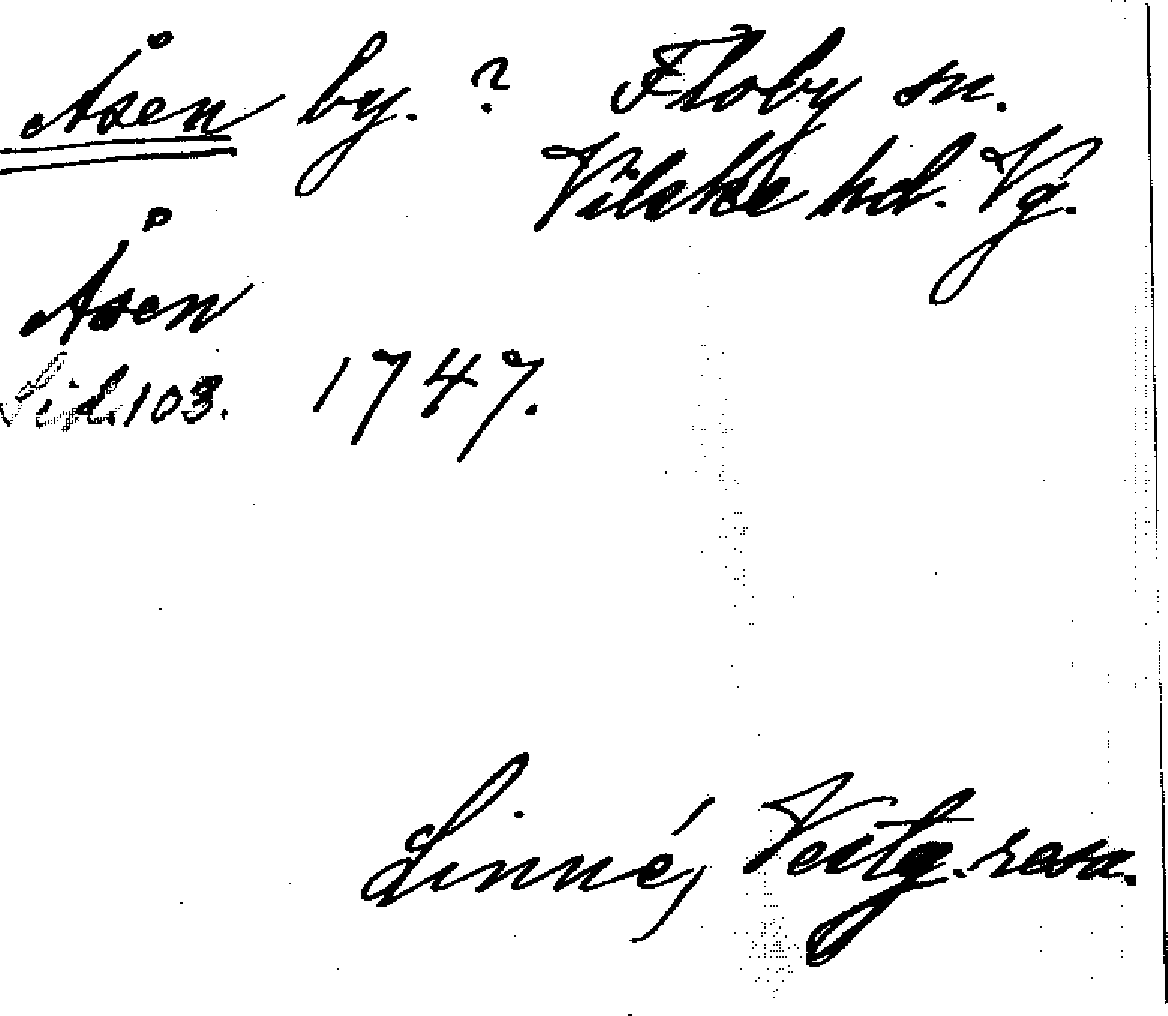 Åsen by. ? Floby sn.
Vilske hd. Vg.
Åsen
Sid. 103. 1747.
Linné, Vestg. resa.